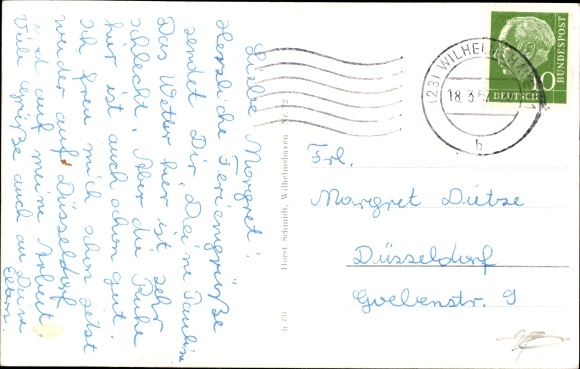 Liebe Margret!
Herzliche Feriengrüße
sendet Dir Deine Pauline
Das Wetter hier ist sehr
schlecht. Aber die Ruhe
hier ist auch schon gut.
Ich freu mich schon jetzt
wieder auf Düsseldorf
und auf meine Arbeit
Viele Grüße auch an Deine
Eltern.
Horst Schmidt, Wilhelmshaven Nr. 72
h 80
(23) WILHELMSHAVEN
18.3.5
b
DEUTSCHE
BUNDESPOST
Frl.
Margret Dietze
Düsseldorf
Goebenstr. 9